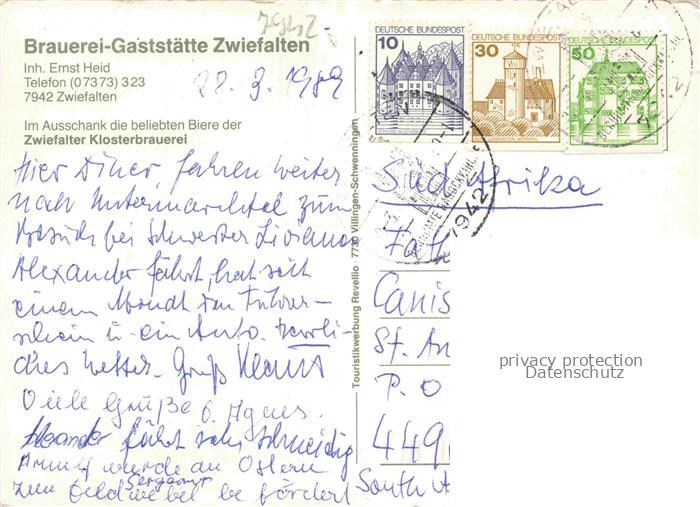 7942
Brauerei-Gaststätte Zwiefalten
Inh. Ernst Heid
Telefon (07373) 323
7942 Zwiefalten
22. 3. 1989
Im Ausschank die beliebten Biere der
Zwiefalter Klosterbrauerei
Hier Diner fahren weiter
nach Untermarchtal zum
Besuch bei Schwester
Alexander fährt, hat seit
einem Monat den Führer-
schein u. ein Auto. Herrli-
ches Wetter. Gruß
Viele Grüße b. Agnes.
Alexander fährt sehr schneidig
wurde an Ostern
Sergeant
zum Feldwebel befördert
Touristikwerbung Revellio · 7730 Villingen-Schwenningen
DEUTSCHE BUNDESPOST
10
DEUTSCHE BUNDESPOST
30
DEUTSCHE BUNDESPOST
50
7942
Süd Afrika
Canis
St. An
P. O
449
South A
privacy protection
Datenschutz